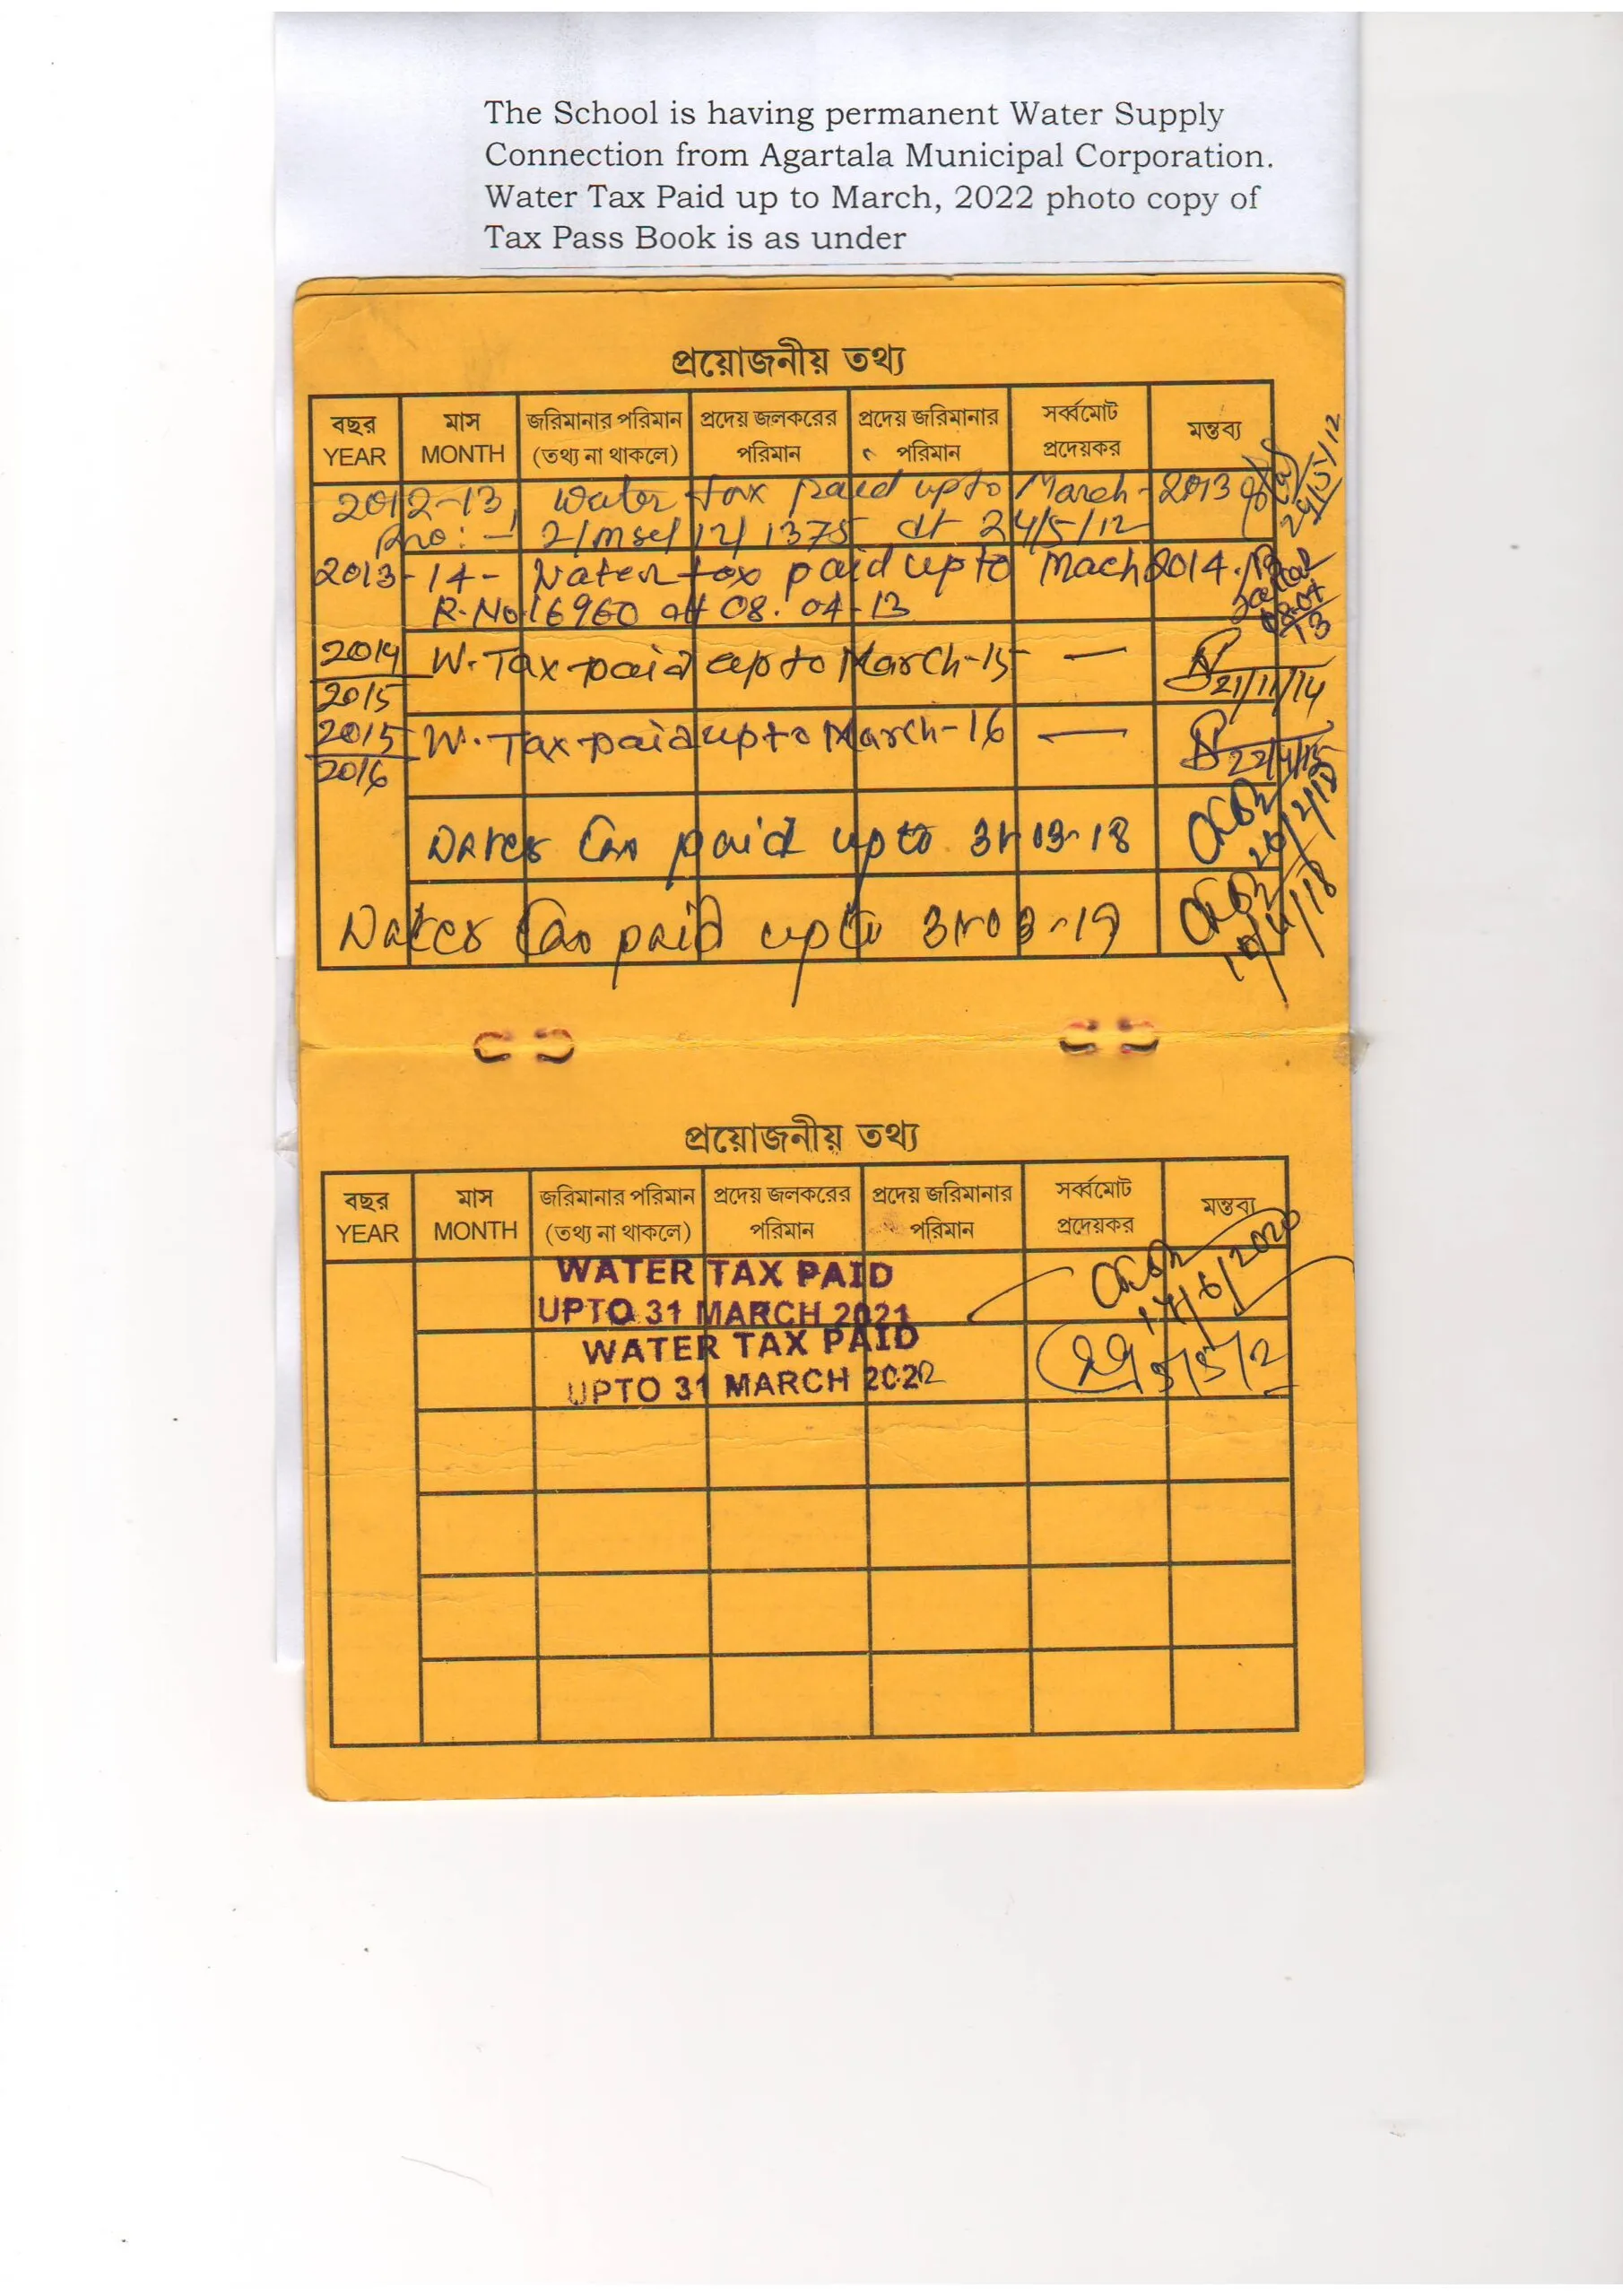 The School is having permanent Water Supply
Connection from Agartala Municipal Corporation.
Water Tax Paid up to March, 2022 photo copy of
Tax Pass Book is as under
প্রয়োজনীয় তথ্য
বছর YEAR মাস MONTH জরিমানার পরিমান (তথ্য না থাকলে) প্রদেয় জলকরের পরিমান প্রদেয় জরিমানার পরিমান সর্ব্বমোট প্রদেয়কর মন্তব্য
2012-13 Water tax paid upto March-2013
24/5/12
2/msel/12/1375 dt 24/5/12
2013-14- Water tax paid upto Mach 2014.
R.No 16960 dt 08.04-13
08.04
13
2014 2015 W. Tax paid upto March-15 — 21/11/14
2015 2016 W. Tax paid upto March-16 — 22/4/15
Water Tax paid upto 31-03-18
Water Tax paid upto 31-03-19
প্রয়োজনীয় তথ্য
বছর YEAR মাস MONTH জরিমানার পরিমান (তথ্য না থাকলে) প্রদেয় জলকরের পরিমান প্রদেয় জরিমানার পরিমান সর্ব্বমোট প্রদেয়কর মন্তব্য
WATER TAX PAID
UPTO 31 MARCH 2021
WATER TAX PAID
UPTO 31 MARCH 2022